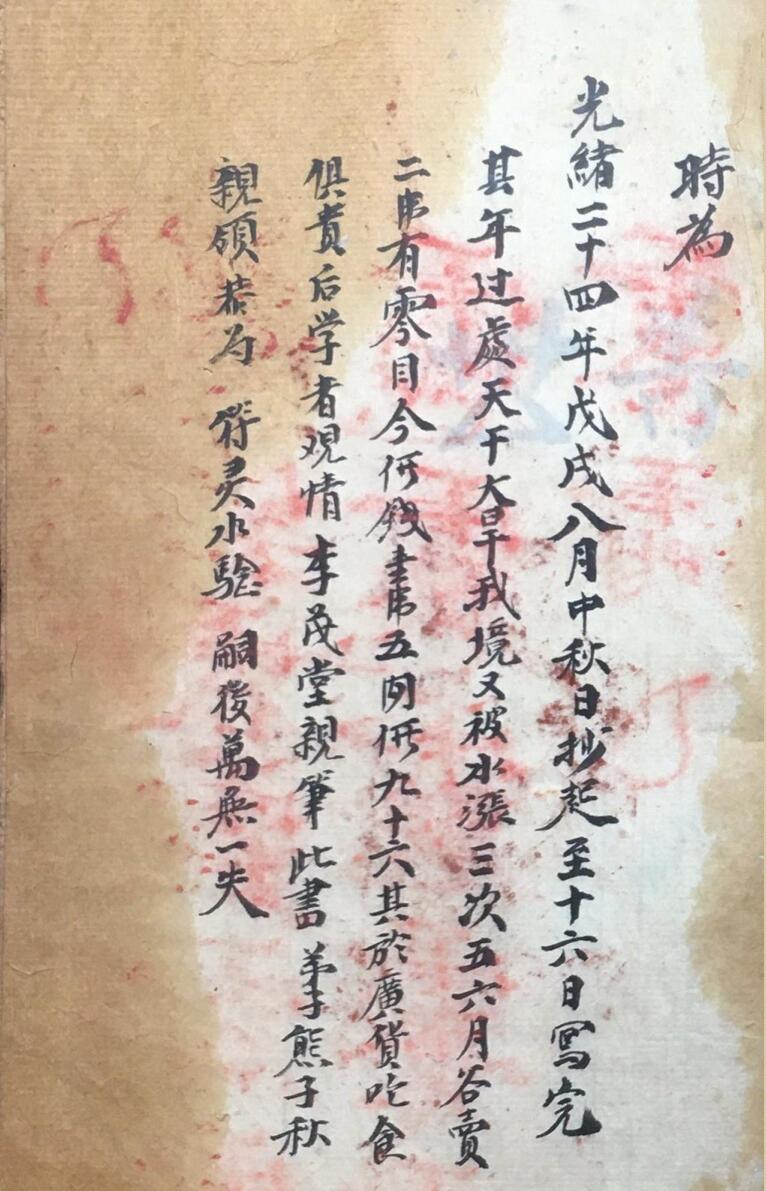 時為
光緒二十四年戊戌八月中秋日抄起至十六日寫完
其年过處天干大旱我境又被水漲三次五六月谷賣
二串有零目今仍錢壹串五問仍九十六其於廣貨吃食
俱貴后学者观情李茂堂親筆此書弟子熊子秋
親領恭为符灵水驗嗣後萬無一失